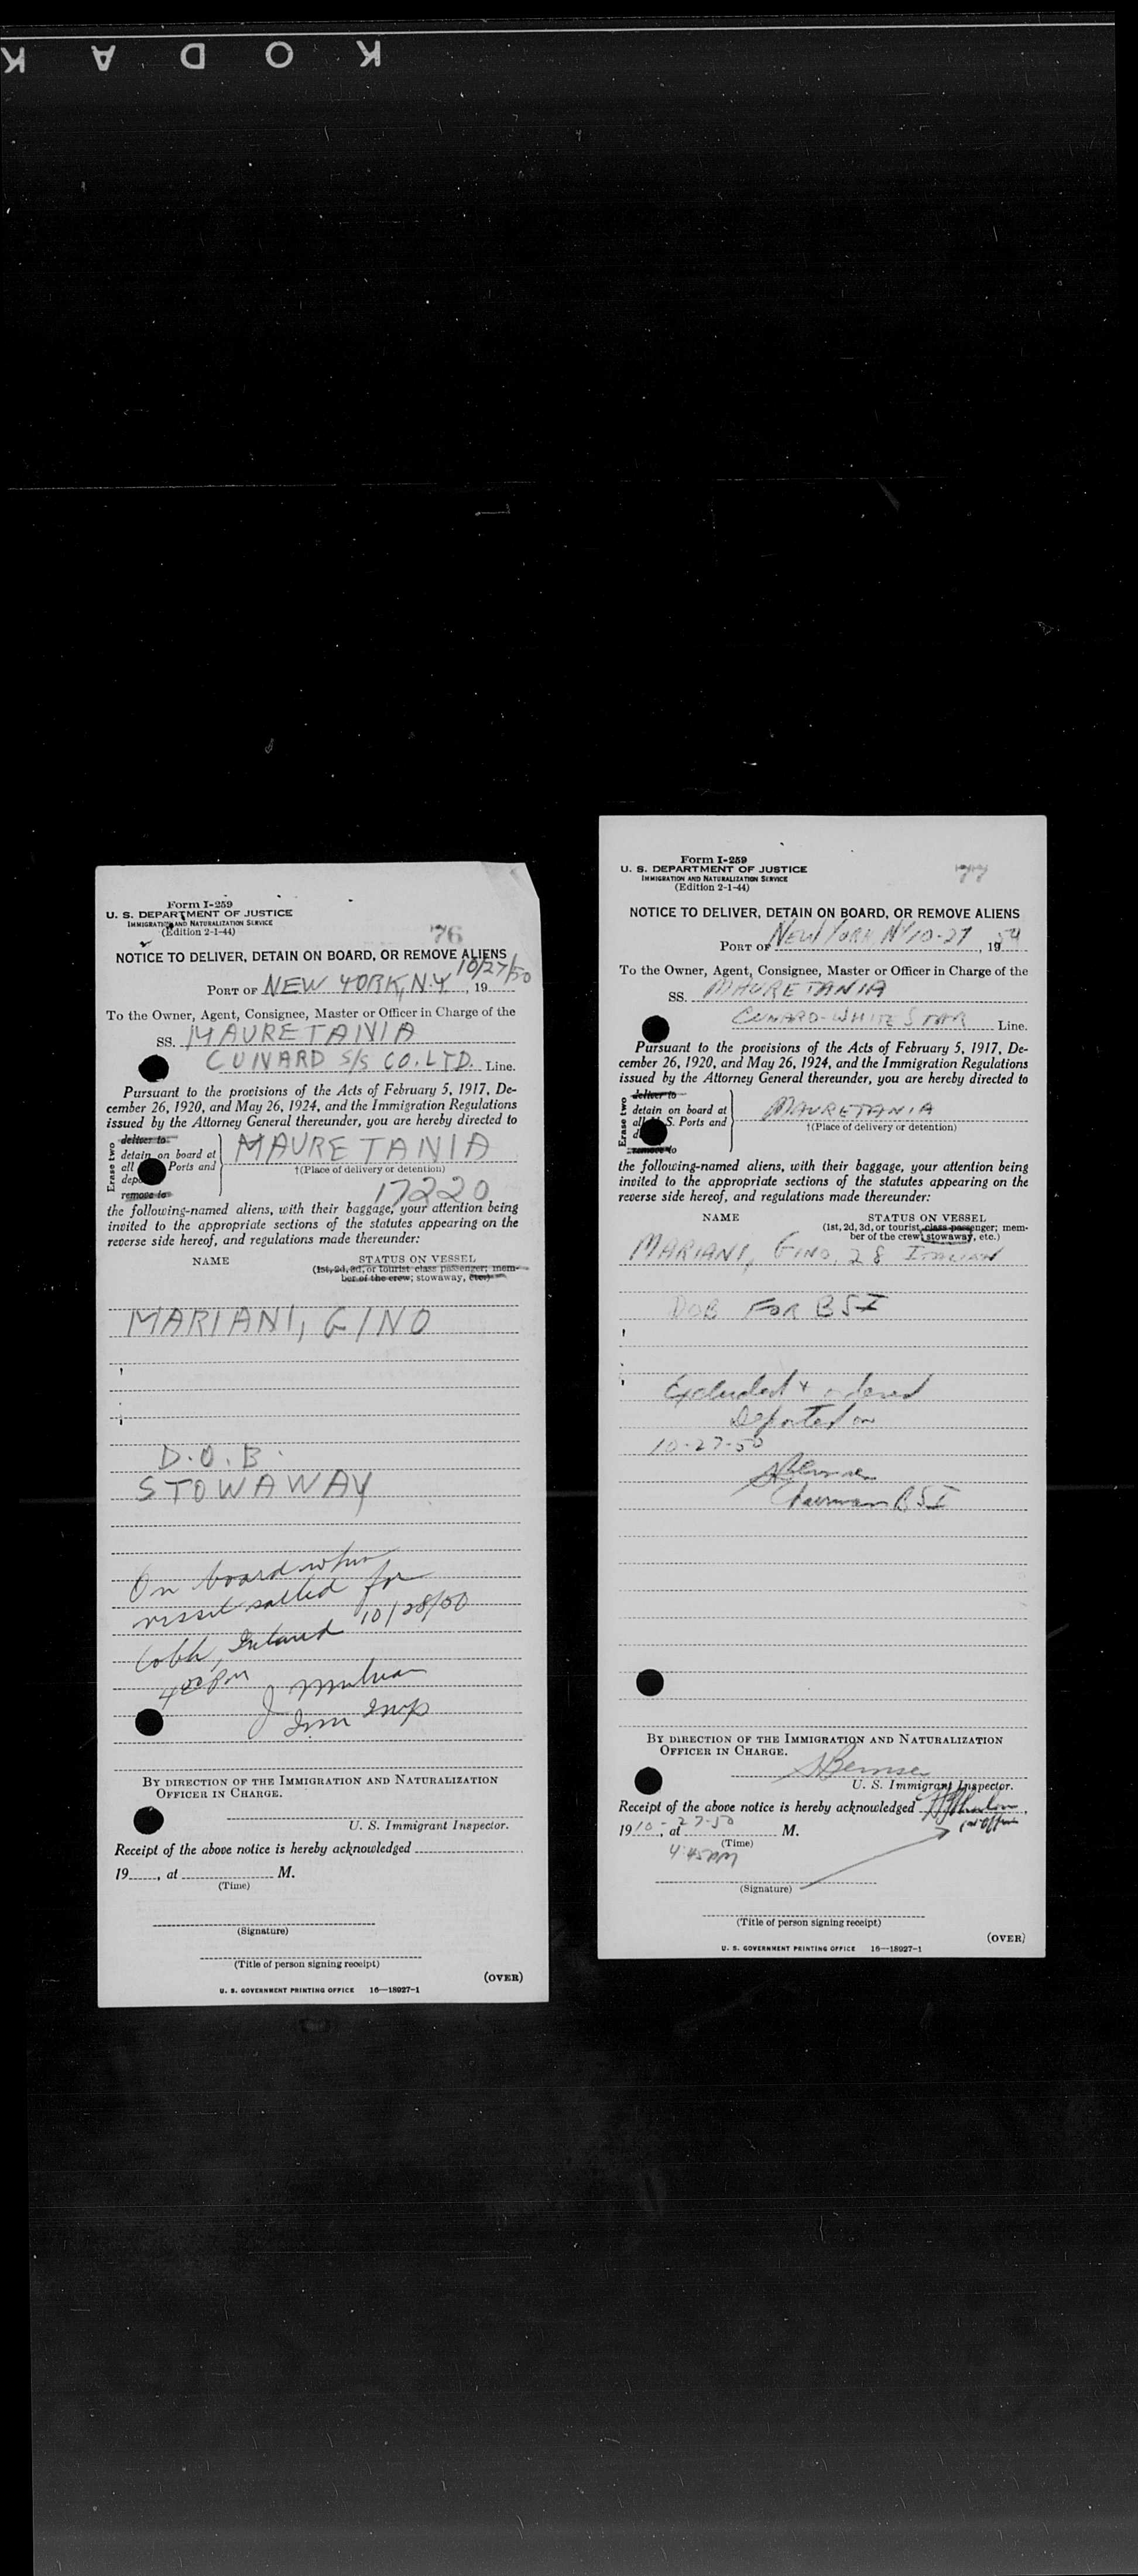 KODAK
Form I-259
U. S. DEPARTMENT OF JUSTICE
IMMIGRATION AND NATURALIZATION SERVICE
(Edition 2-1-44)
76
NOTICE TO DELIVER, DETAIN ON BOARD, OR REMOVE ALIENS
10/27/50
PORT OF NEW YORK, N.Y., 19
To the Owner, Agent, Consignee, Master or Officer in Charge of the
SS. MAURETANIA
CUNARD S/S CO. LTD. Line.
Pursuant to the provisions of the Acts of February 5, 1917, De-
cember 26, 1920, and May 26, 1924, and the Immigration Regulations
issued by the Attorney General thereunder, you are hereby directed to
Erase two
deliver to
detain on board at
all Ports and
remove to
MAURETANIA
†(Place of delivery or detention)
17220
the following-named aliens, with their baggage, your attention being
invited to the appropriate sections of the statutes appearing on the
reverse side hereof, and regulations made thereunder:
NAME STATUS ON VESSEL
(1st, 2d, 3d, or tourist class passenger; mem-
ber of the crew; stowaway, etc.)
MARIANI, GINO
D.O.B.
STOWAWAY
On board when
vessel sailed for
Cobh, Ireland 10/28/50
4 00 PM
J
Imm Insp
BY DIRECTION OF THE IMMIGRATION AND NATURALIZATION
OFFICER IN CHARGE.
U. S. Immigrant Inspector.
Receipt of the above notice is hereby acknowledged
19, at M.
(Time)
(Signature)
(Title of person signing receipt)
(OVER)
U. S. GOVERNMENT PRINTING OFFICE 16—18927-1
Form I-259
U. S. DEPARTMENT OF JUSTICE
IMMIGRATION AND NATURALIZATION SERVICE
(Edition 2-1-44)
77
NOTICE TO DELIVER, DETAIN ON BOARD, OR REMOVE ALIENS
PORT OF NEW YORK NY 10-27, 19
To the Owner, Agent, Consignee, Master or Officer in Charge of the
SS. MAURETANIA
CUNARD-WHITE STAR Line.
Pursuant to the provisions of the Acts of February 5, 1917, De-
cember 26, 1920, and May 26, 1924, and the Immigration Regulations
issued by the Attorney General thereunder, you are hereby directed to
Erase two
deliver to
detain on board at
all S. Ports and
remove to
MAURETANIA
†(Place of delivery or detention)
the following-named aliens, with their baggage, your attention being
invited to the appropriate sections of the statutes appearing on the
reverse side hereof, and regulations made thereunder:
NAME STATUS ON VESSEL
(1st, 2d, 3d, or tourist class passenger; mem-
ber of the crew; stowaway, etc.)
MARIANI, GINO, 28 ITALIAN
DOB FOR BSI
Excluded & ordered
Deported on
10-27-50
Chairman BSI
BY DIRECTION OF THE IMMIGRATION AND NATURALIZATION
OFFICER IN CHARGE.
U. S. Immigrant Inspector.
Receipt of the above notice is hereby acknowledged
19 10-27-50, at M.
(Time)
4:45 PM
(Signature)
(Title of person signing receipt)
(OVER)
U. S. GOVERNMENT PRINTING OFFICE 16—18927-1